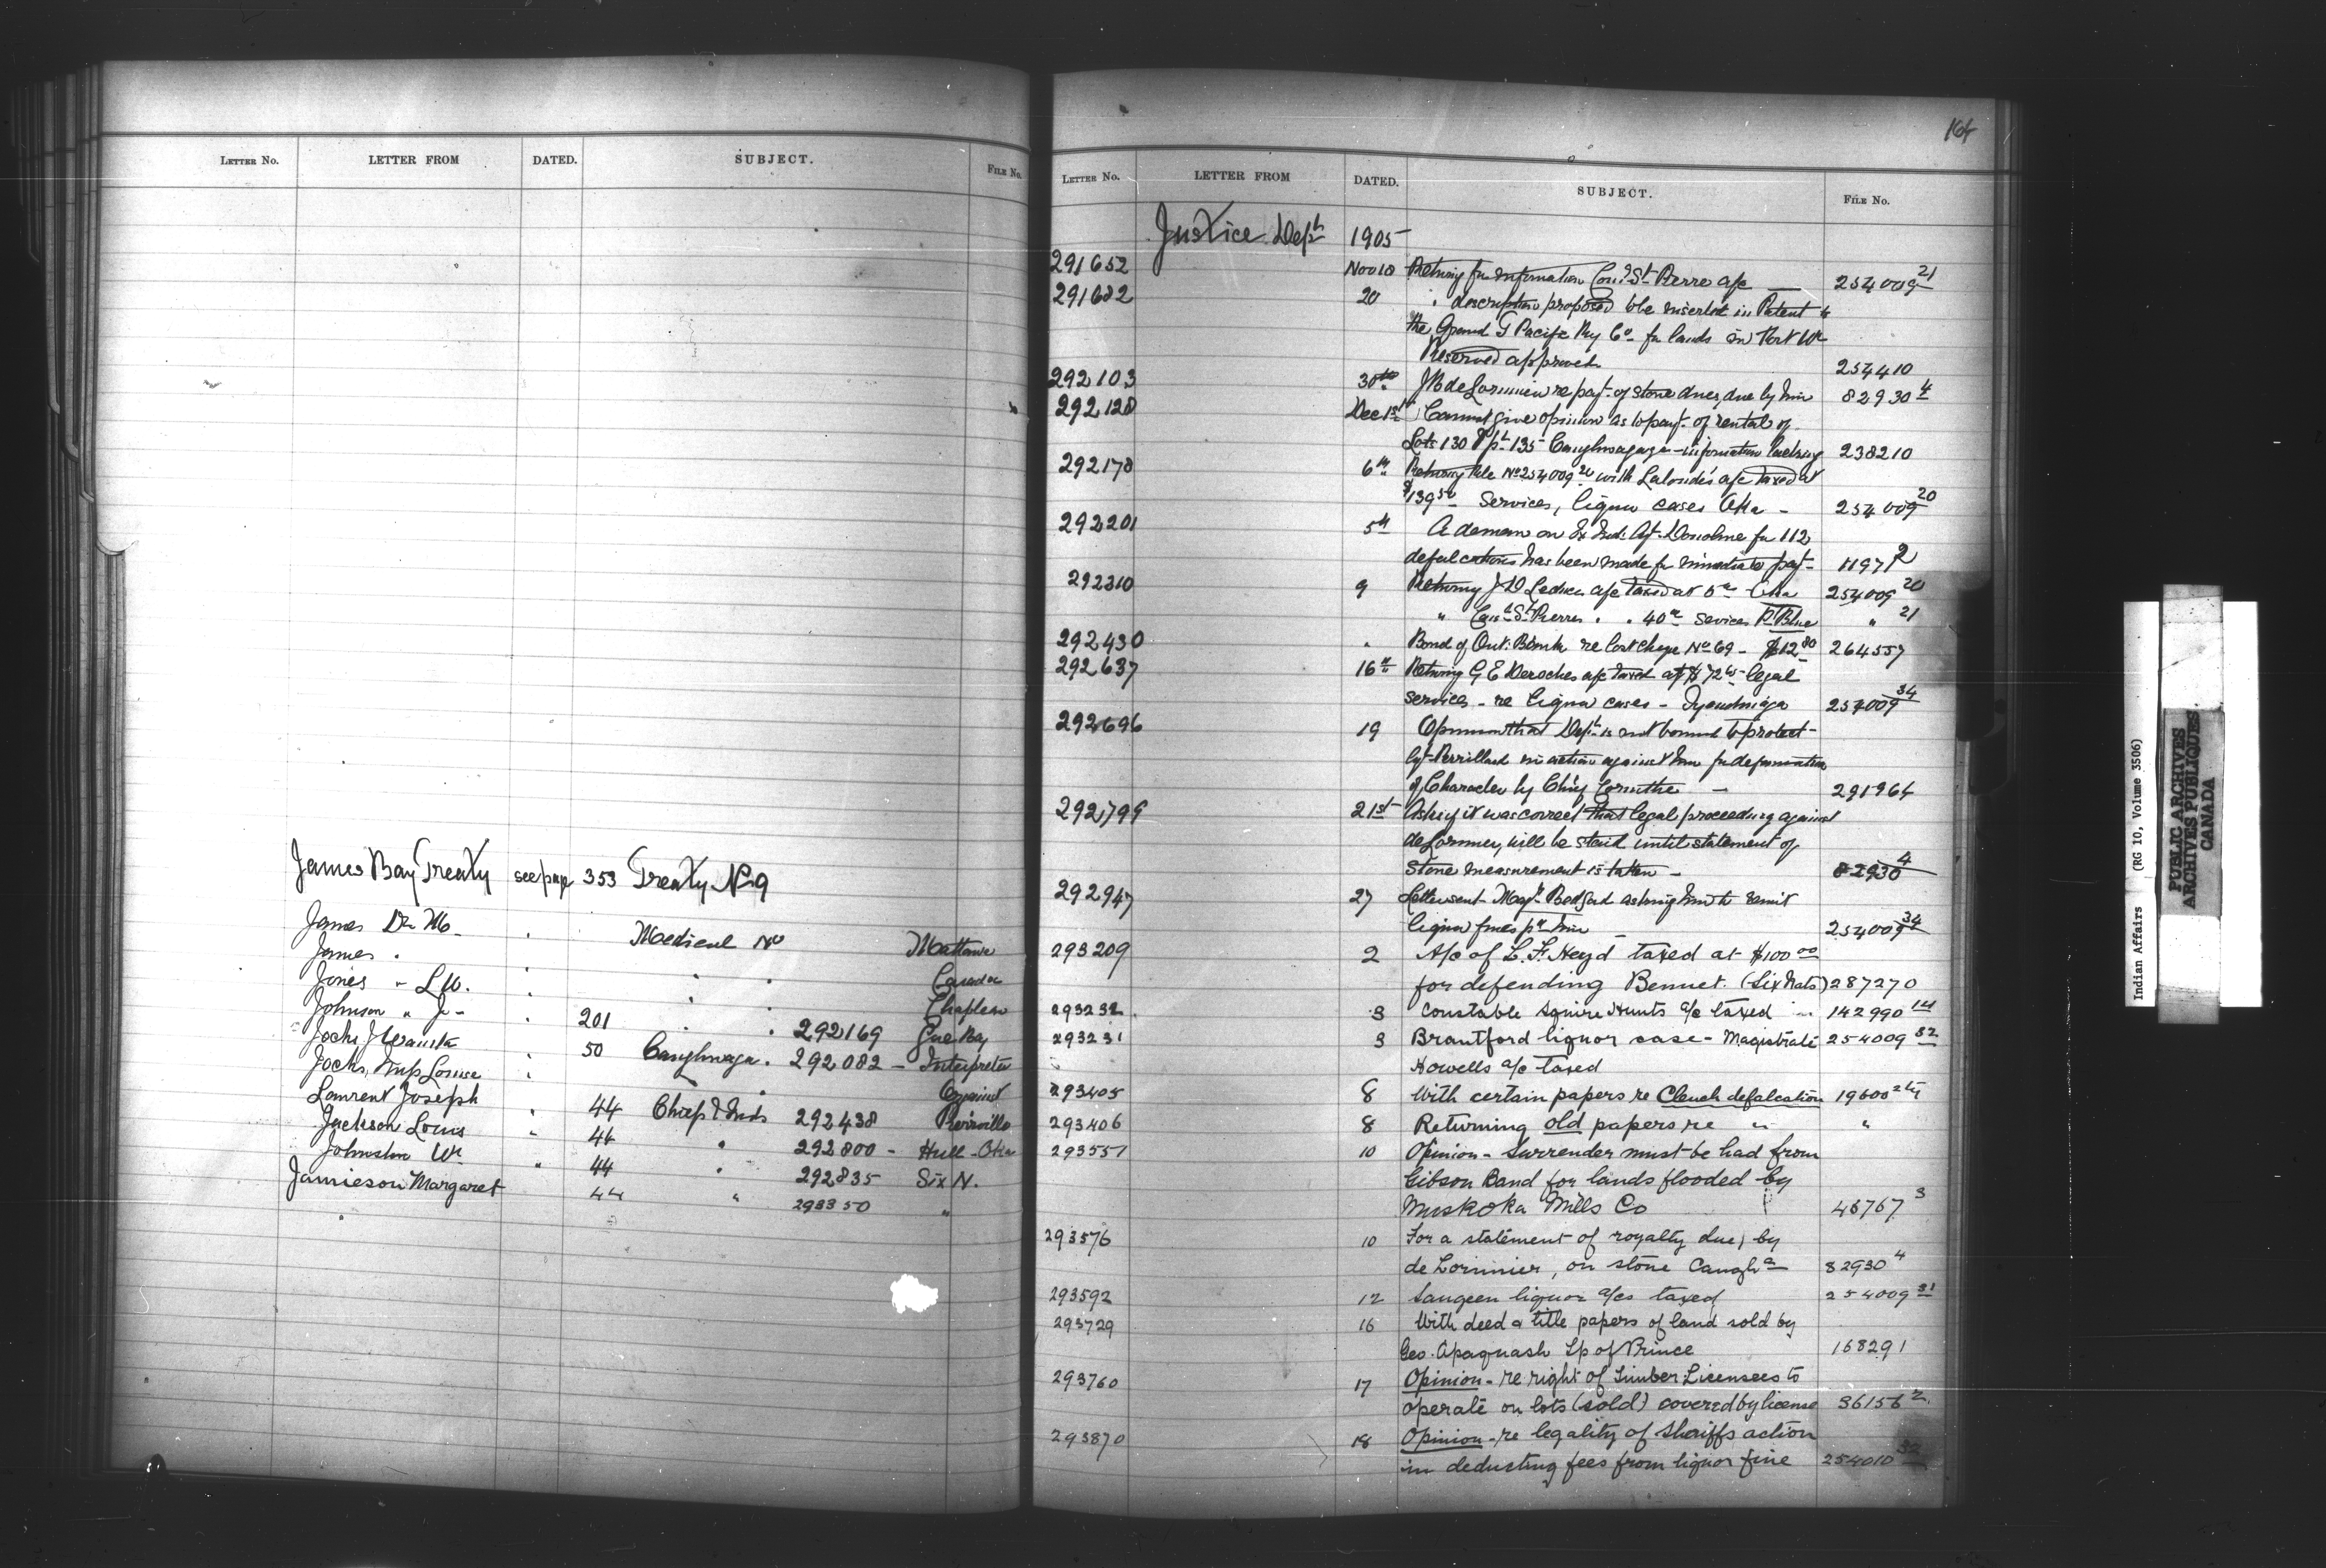 LETTER NO. LETTER FROM DATED. SUBJECT. FILE No.
James Bay Treaty see page 353 Treaty No 9
James Dr M. Medical Mattawa
James " "
Jones " L W. " " Canada
Johnson " J " " Chapleau
Jocks J 201 " " 292169 Gore Bay
Jocks, Louise 50 Caughnwaga. 292082 - Interpreter
Laurent Joseph against
Jackson Louis 44 Chief & Inds 292438 Pierreville
Johnston Wm 44 " 292800 - Hull - Oka
Jamieson Margaret 44 " 292835 Six N.
44 " 293350 "
164
LETTER NO. LETTER FROM DATED. SUBJECT. FILE No.
Justice Dept 1905
291652 Nov 18 Returng for information Cons St Pierre a/c 254009 21
291682 20 " description proposed to be inserted in Patent to
the Grand T Pacific Ry Co for lands in Fort Wm
Reserve approved 254410
292103 30th de Lorimier re payt of stone dues, due by him 82930 4
292128 Dec 1st Cannot give opinion as to payt of rental of
Lots 130 & pt 135 Caughnawaga - information lacking 238210
292178 6th Returng file No 254009 20 with Lalonde's a/c taxed at
$139 50 Services, liquor cases Oka - 254009 20
292201 5th A deman on Ex Ind. Agt. for 112
defalcations has been made for immediate payt 11971 2
292310 9 Returng J D Leduc a/c taxed at Oka 254009 20
" Cons St Pierres " " 40 00 Services R. Blue " 21
292430 " Bond of Ont. Bank re lost cheque No 69 - $12 80 264557
292637 16th Returng G E Deroches a/c taxed at $72 legal
services - re liquor cases - Tyendinaga 254009 34
292696 19 Opinion that Dept is not bound to protect
Agt in action against him for defamation
of Character by Corinthe - 291964
292799 21st Askg if it was correct that legal proceedings against
de Lorimier, will be staid until statement of
stone measurement is taken - 82930 4
292947 27 Letter sent Magt Bedford asking him to remit
liquor fines pd him - 254009 34
293209 2 A/c of L. F. Heyd taxed at $100 00
for defending Bennet. (Six Nats) 287270
293232 3 Constable Squire Hunts a/c taxed 142990 14
293231 3 Brantford liquor case - Magistrate 254009 32
Howells a/c taxed
293405 8 With certain papers re Clench defalcation 19600
293406 8 Returning old papers re " "
293551 10 Opinion - Surrender must be had from
Gibson Band for lands flooded by
Muskoka Mills Co 46767 3
293576 10 For a statement of royalty due, by
de Lorimier, on stone Caugha 82930 4
293592 12 Saugeen liquor a/cs taxed 254009 31
293729 16 With deed & title papers of land sold by
Geo. Apaquash Tp of Prince 168291
293760 17 Opinion - re right of Timber Licensees to
operate on lots (sold) covered by license 36156 2
293870 18 Opinion - re legality of Sheriffs action
in deducting fees from liquor fine 254010 32
Indian Affairs (RG 10, Volume 3506)
PUBLIC ARCHIVES
ARCHIVES PUBLIQUES
CANADA